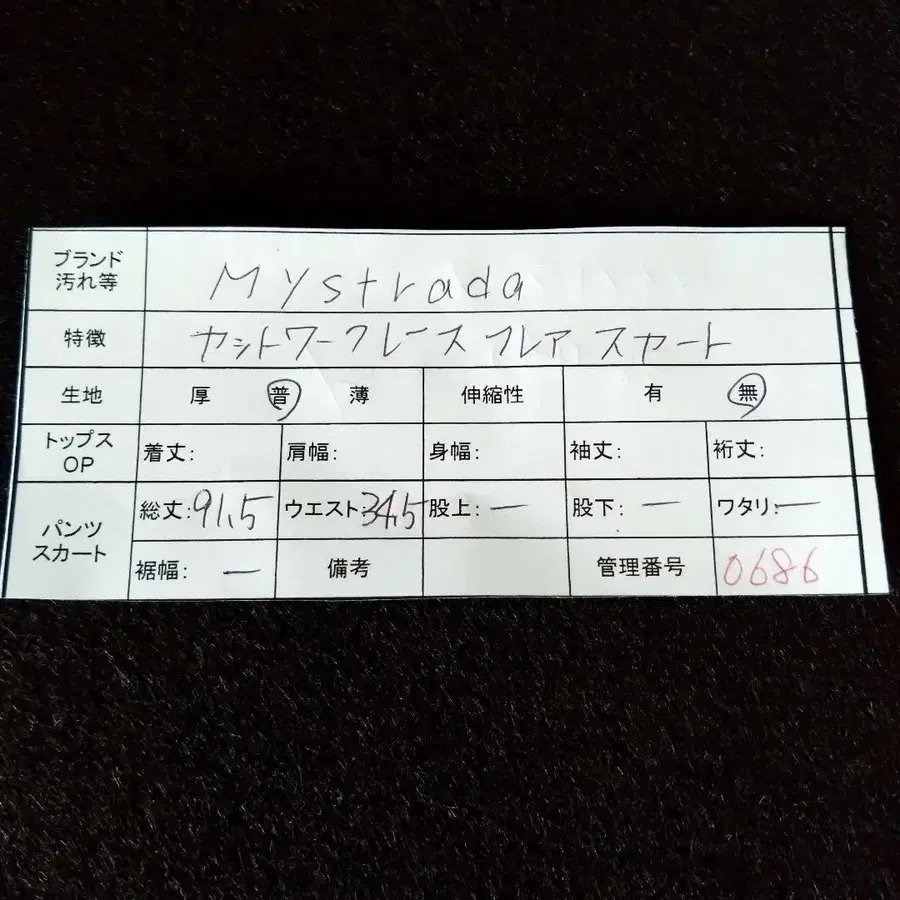 ブランド
汚れ等 Mystrada
特徴 カットワークレース フレア スカート
生地 厚 普 薄 伸縮性 有 無
トップス
OP 着丈: 肩幅: 身幅: 袖丈: 裄丈:
パンツ
スカート 総丈:91.5 ウエスト:34.5 股上:ー 股下:ー ワタリ:ー
裾幅: ー 備考 管理番号 0686